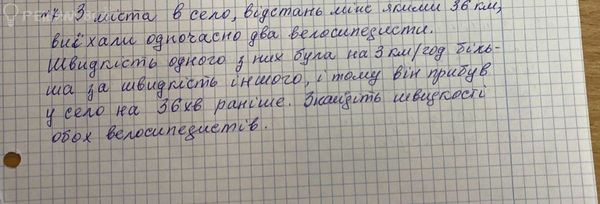 З міста в село, відстань між якими 36 км,
виїхали одночасно два велосипедисти.
Швидкість одного з них була на 3 км/год біль-
ша за швидкість іншого, і тому він прибув
у село на 36хв раніше. Знайдіть швидкості
обох велосипедистів.